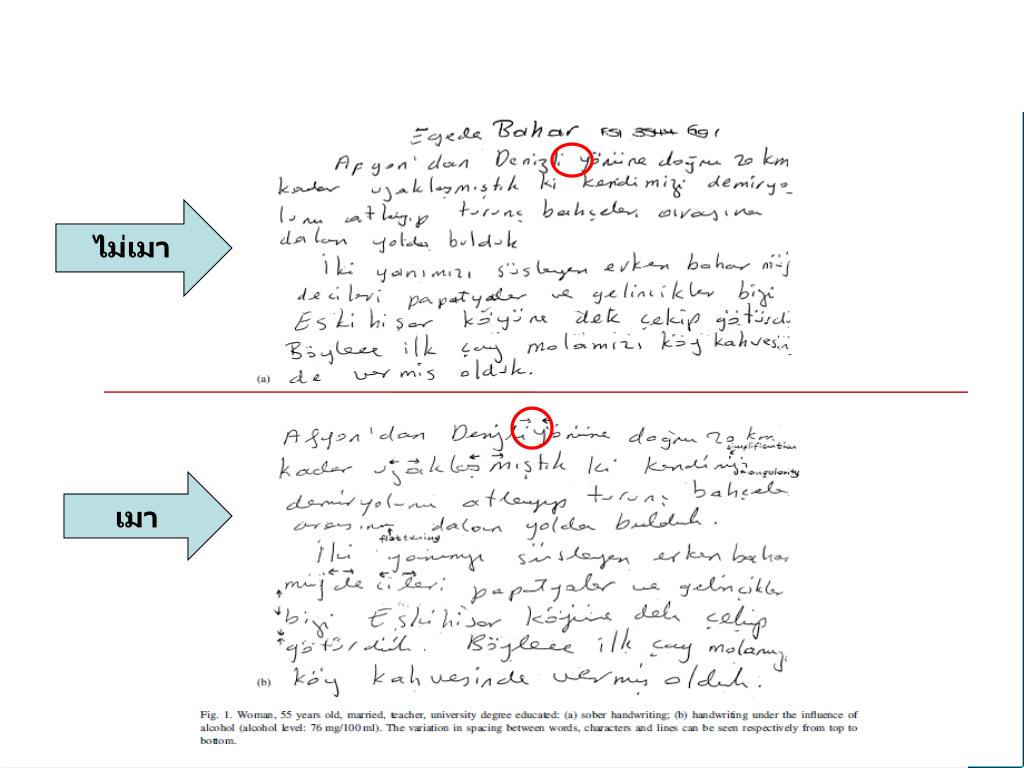 Egede Bahar FSI 3544 691
Afyon'dan Denizli yönüne doğru 20 km
kadar uzaklaşmıştık ki kendimizi demiryo-
lunu atlayıp turunç bahçeleri arasına
dalan yolda bulduk
ไม่เมา
İki yanımızı süsleyen erken bahar müj
decileri papatyalar ve gelincikler bizi
Eskihisar köyüne dek çekip götürdü.
Böylece ilk çay molamızı köy kahvesin
(a) de vermiş olduk.
Afyon'dan Denizli yönüne doğru 20 km
simplification
kadar uzaklaşmıştık ki kendimizi
angularity
demiryolunu atlayıp turunç bahçele
arasına dalan yolda bulduk.
เมา
flattening
İki yanımızı süsleyen erken bahar
müjdecileri papatyalar ve gelincikler
bizi Eskihisar köyüne dek çekip
götürdük. Böylece ilk çay molamızı
(b) köy kahvesinde vermiş olduk.
Fig. 1. Woman, 55 years old, married, teacher, university degree educated: (a) sober handwriting; (b) handwriting under the influence of
alcohol (alcohol level: 76 mg/100 ml). The variation in spacing between words, characters and lines can be seen respectively from top to
bottom.